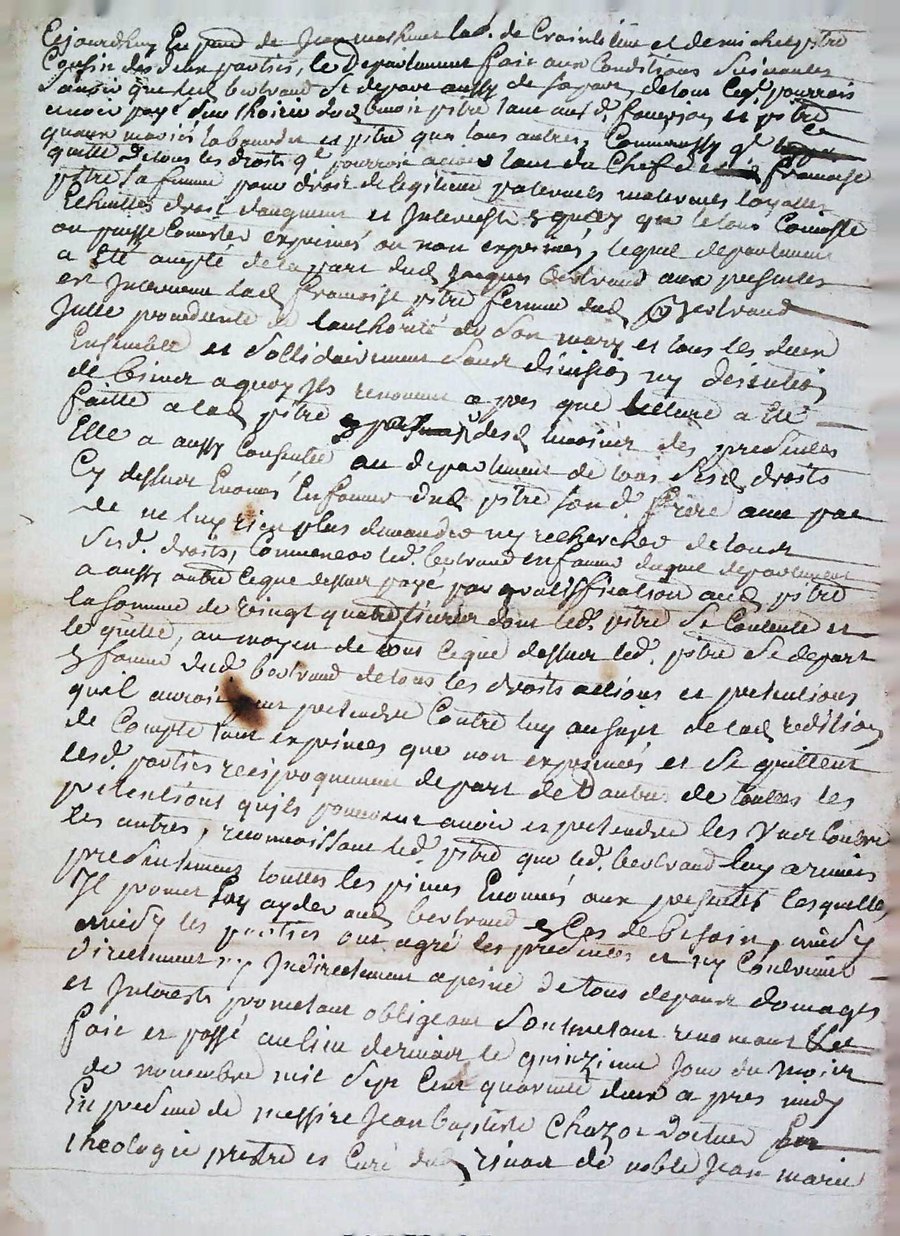 Cejourdhuy En pnce de Jean mathieu lad. de Craintilieu et denis chez pitre
Cousin des deux parties, le Departement fait aux Conditions Suivantes
Savoir que led bertrand Se depart aussy de Sa part de tout ce qe pourroit
avoir payé dud Benoit pitre tant aud. francois et pitre
quaux mariés labourdes et pitre que tous autres, Comm aussy qe
quitte de tous les droits qe pourroit avoir tant du Chef de francoise
pitre Sa femme pour droit de legitime paternels maternels loyalles
Echuttes droit daugment et Interests & quoy que le tout Consiste
ou puisse Consister exprimés ou non exprimés, lequel departement
a Eté accepté de la part dud Jacques Bertrand aux presentes
est Intervenue lad francoise pitre femme dud Bertrand
Jcelle procedente de lauthorité de Son mary et tous les deux
Ensemble et Sollidairement Sans division ny discution
de biens a quoy Jls renoncent apres que lecture a Eté
faitte a lad pitre desd des presentes
Elle a aussy Consentie au departement de tous Sesd droits
Cy dessus Enoncés En faveur dud pitre Sond. frere avec pac
de ne luy rien plus demander ny rechercher de tous
Sesd. droits, led. bertrand en faveur duquel departement
a aussy outre ce que dessus payé par gratiffication aud pitre
la Somme de vingt quatre livres dont led. pitre Se Contente et
le quitte, au moyen de tous ce que dessus led. pitre Se depart
En faveur dud. bertrand de tous les droits actions et pretentions
quil auroit pretendre Contre luy au Sujet de lad reditions
de Compte tant exprimés que non exprimés et Se quittent
lesd. parties reciproquement de part et Dautres de toutes les
pretentions quils pourront avoir et pretendre les Uns Contre
les autres, reconnoissant led. pitre que led. bertrand luy a remis
presentement touttes les pieces Enoncés aux presentes lesquelles
Jl promet luy ayder aud bertrand En Cas de besoin, ainsy
les parties ont agré les presentes et ny Contrevenir
directement ny Indirectement a peine de tous depans domages
et Interests prometant obligeant Soumetant renoncant
fait et passé au lieu de le quinzieme Jour du mois
de novembre mil Sept Cent quarante deux apres midy
En presence de messire Jean baptiste Chazot docteur
theologie prestre et Curé dud de noble Jean marie